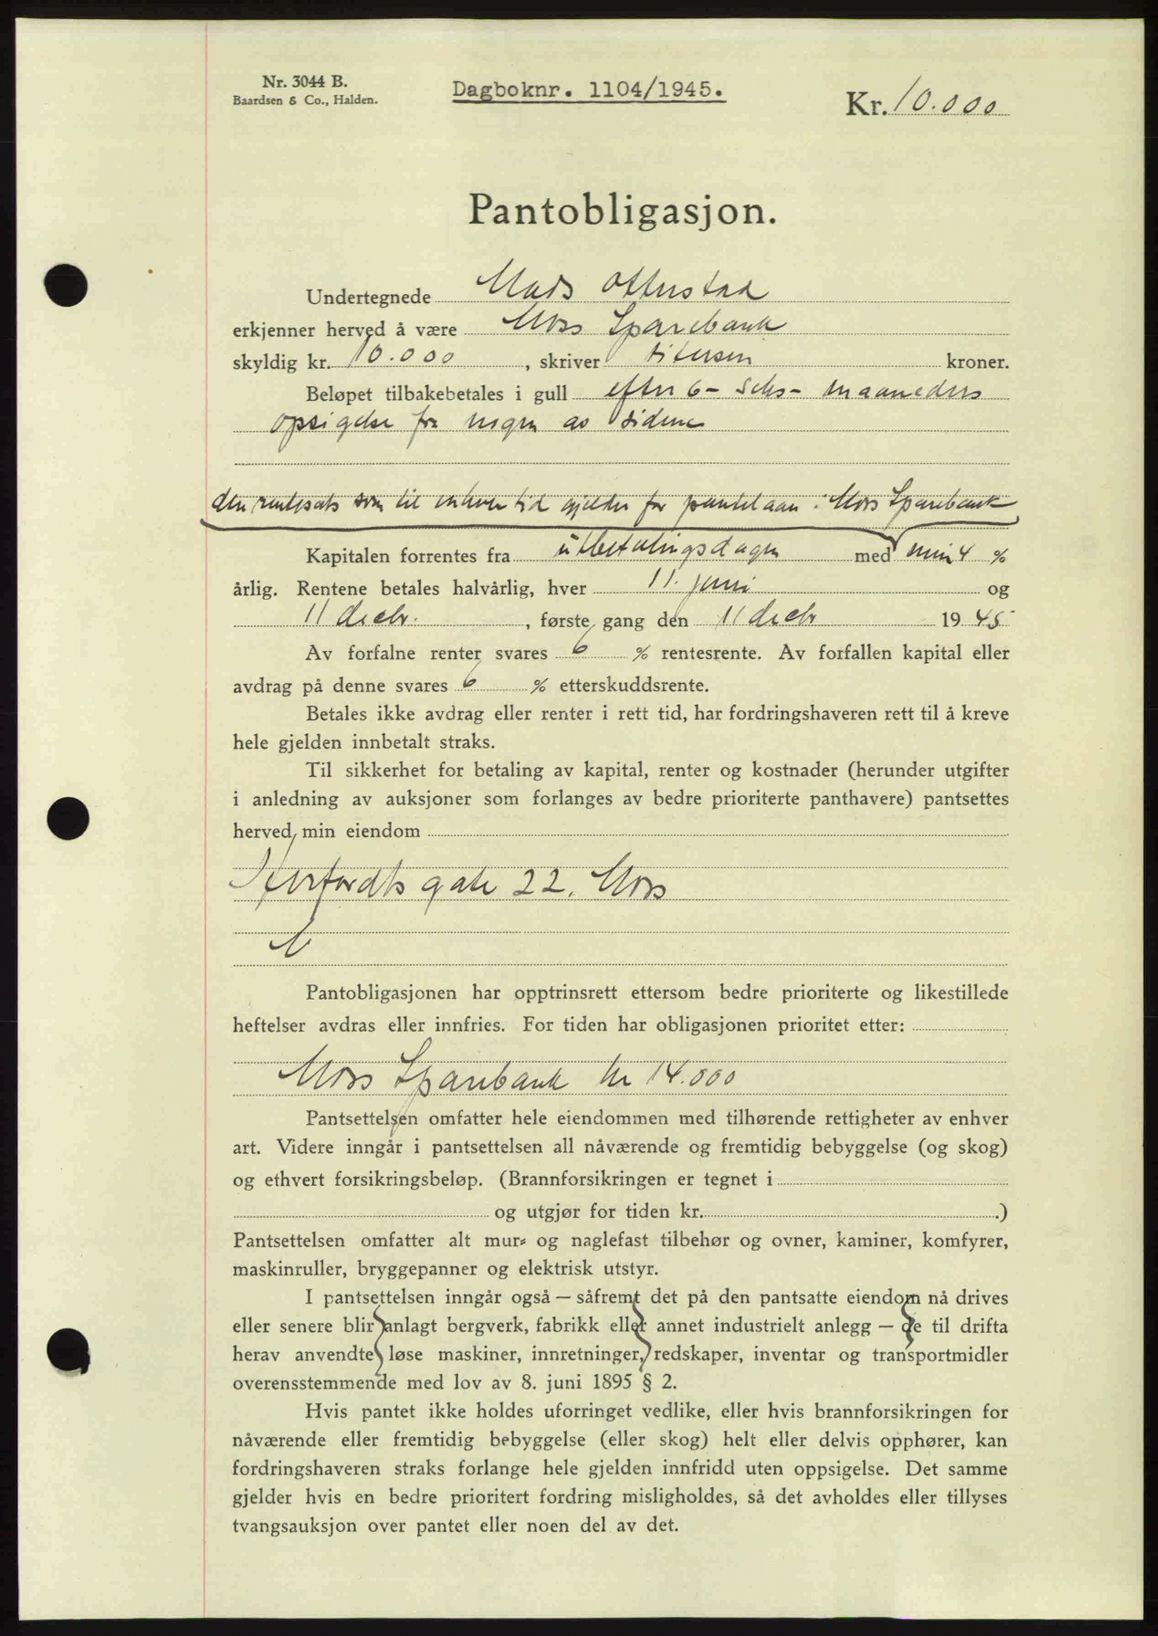 Nr. 3044 B.
Baardsen & Co., Halden.
Dagboknr. 1104/1945.
Kr. 10.000
Pantobligasjon.
Undertegnede Mads Otterstad
erkjenner herved å være Moss Sparebank
skyldig kr. 10.000, skriver titusen kroner.
Beløpet tilbakebetales i gull efter 6- seks- maaneders
opsigelse fra nogen av siderne
den rentesats som til enhver tid gjelder for pantelaan i Moss Sparebank
Kapitalen forrentes fra utbetalingsdagen med min 4 %
årlig. Rentene betales halvårlig, hver 11. juni og
11 decbr., første gang den 11 decbr 1945
Av forfalne renter svares 6 % rentesrente. Av forfallen kapital eller
avdrag på denne svares 6 % etterskuddsrente.
Betales ikke avdrag eller renter i rett tid, har fordringshaveren rett til å kreve
hele gjelden innbetalt straks.
Til sikkerhet for betaling av kapital, renter og kostnader (herunder utgifter
i anledning av auksjoner som forlanges av bedre prioriterte panthavere) pantsettes
herved min eiendom
gate 22. Moss
Pantobligasjonen har opptrinsrett ettersom bedre prioriterte og likestillede
heftelser avdras eller innfries. For tiden har obligasjonen prioritet etter:
Moss Sparebank kr 14.000
Pantsettelsen omfatter hele eiendommen med tilhørende rettigheter av enhver
art. Videre inngår i pantsettelsen all nåværende og fremtidig bebyggelse (og skog)
og ethvert forsikringsbeløp. (Brannforsikringen er tegnet i
og utgjør for tiden kr. .)
Pantsettelsen omfatter alt mur- og naglefast tilbehør og ovner, kaminer, komfyrer,
maskinruller, bryggepanner og elektrisk utstyr.
I pantsettelsen inngår også — såfremt det på den pantsatte eiendom nå drives
eller senere blir anlagt bergverk, fabrikk eller annet industrielt anlegg — de til drifta
herav anvendte løse maskiner, innretninger, redskaper, inventar og transportmidler
overensstemmende med lov av 8. juni 1895 § 2.
Hvis pantet ikke holdes uforringet vedlike, eller hvis brannforsikringen for
nåværende eller fremtidig bebyggelse (eller skog) helt eller delvis opphører, kan
fordringshaveren straks forlange hele gjelden innfridd uten oppsigelse. Det samme
gjelder hvis en bedre prioritert fordring misligholdes, så det avholdes eller tillyses
tvangsauksjon over pantet eller noen del av det.